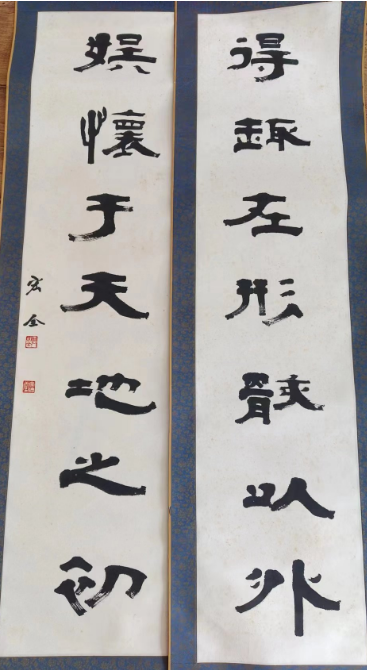 得趣在形骸以外
娱懷于天地之初
宏全